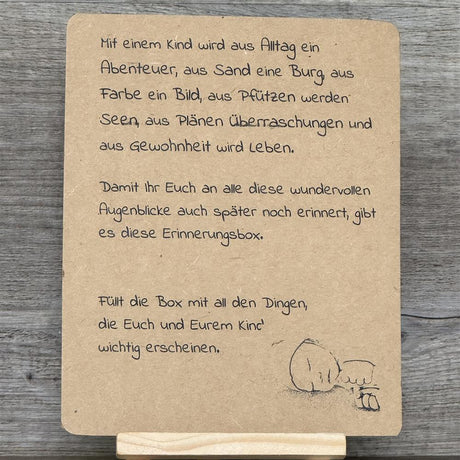 Mit einem Kind wird aus Alltag ein
Abenteuer, aus Sand eine Burg, aus
Farbe ein Bild, aus Pfützen werden
Seen, aus Plänen Überraschungen und
aus Gewohnheit wird Leben.
Damit Ihr Euch an alle diese wundervollen
Augenblicke auch später noch erinnert, gibt
es diese Erinnerungsbox.
Füllt die Box mit all den Dingen,
die Euch und Eurem Kind
wichtig erscheinen.